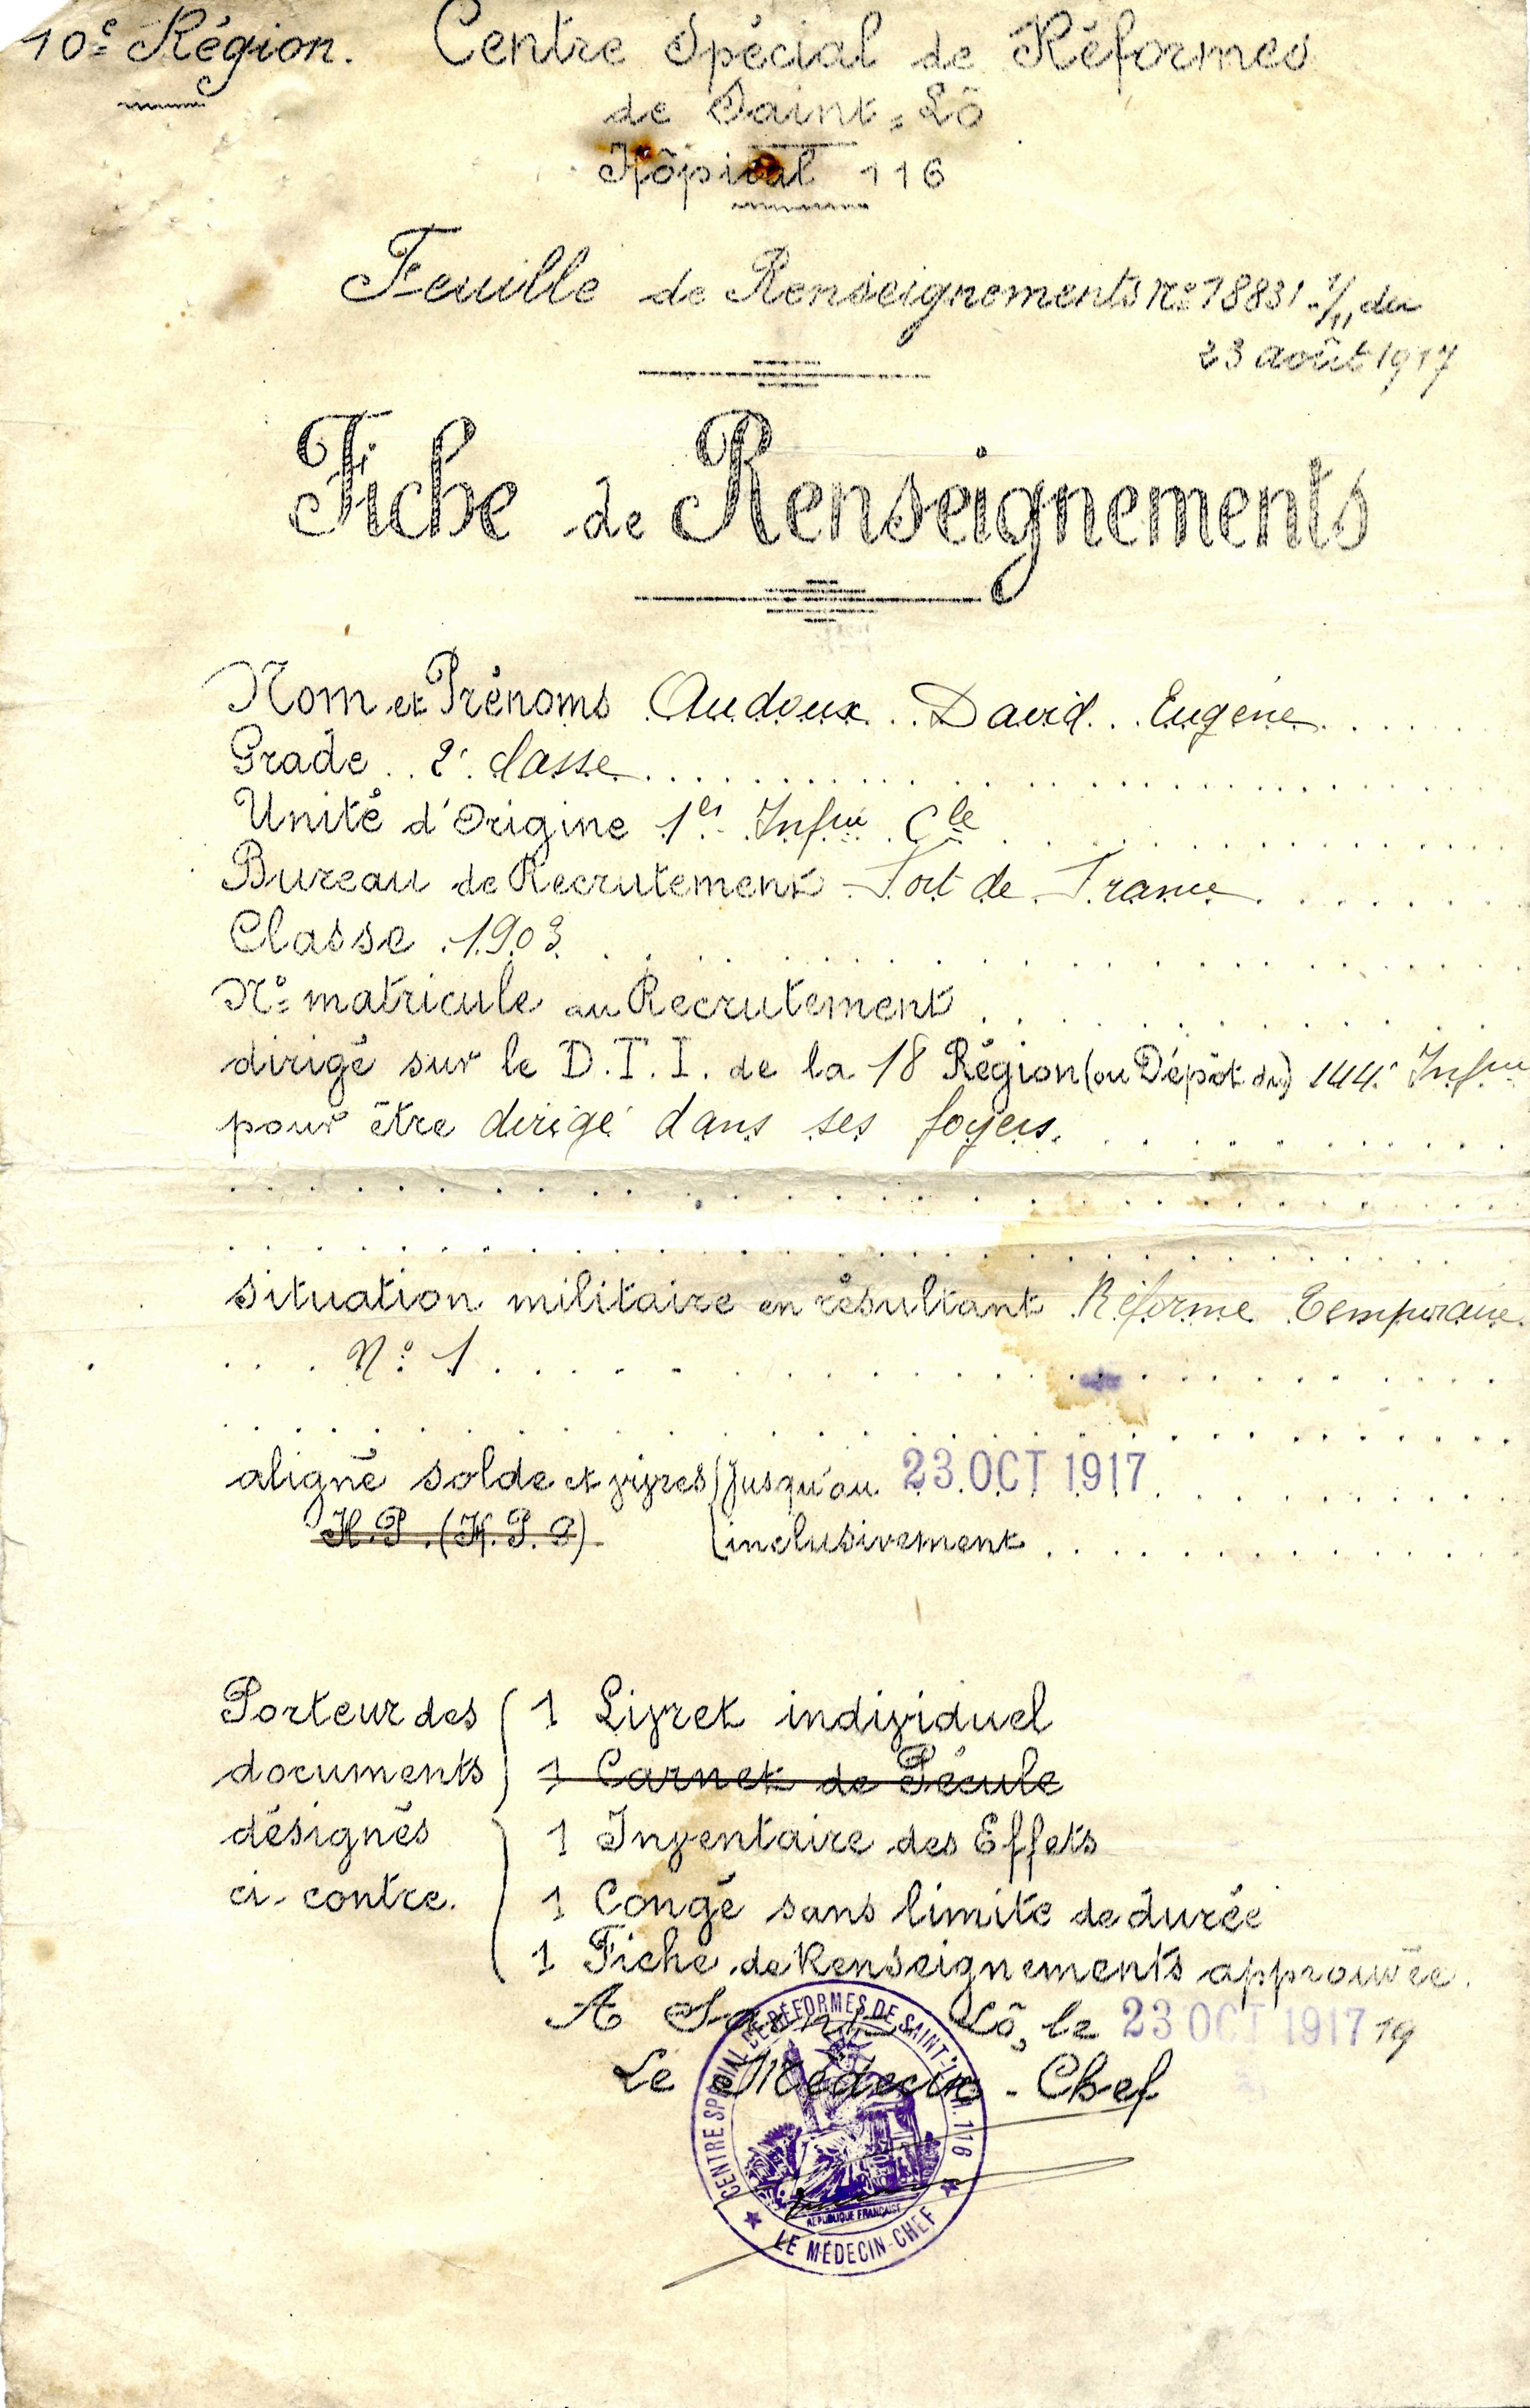 10e Région.
Centre Spécial de Réformes
de Saint-Lô
Hôpital 116
Feuille de Renseignements No 18831 1/11 du
23 août 1917
Fiche de Renseignements
Nom et Prénoms Audoux David Eugène
Grade 2e classe
Unité d'Origine 1er Infrie Cle
Bureau de Recrutement Fort de France
Classe 1903
No matricule au Recrutement
dirigé sur le D.I.I. de la 18 Région (ou Dépôt du) 144e Infrie
pour être dirigé dans ses foyers.
situation militaire en résultant Réforme Temporaire
No 1
aligné solde et vivres jusqu'au 23 OCT 1917
H.P. (H.P.O)
inclusivement
Porteur des documents désignés ci-contre.
1 Livret individuel
1 Carnet de Pécule
1 Inventaire des Effets
1 Congé sans limite de durée
1 Fiche de Renseignements approuvée.
A Saint-Lô, le 23 OCT 1917 19
Le Médecin-Chef
CENTRE SPÉCIAL DE RÉFORMES DE SAINT-LÔ H. 116
RÉPUBLIQUE FRANÇAISE
LE MÉDECIN-CHEF